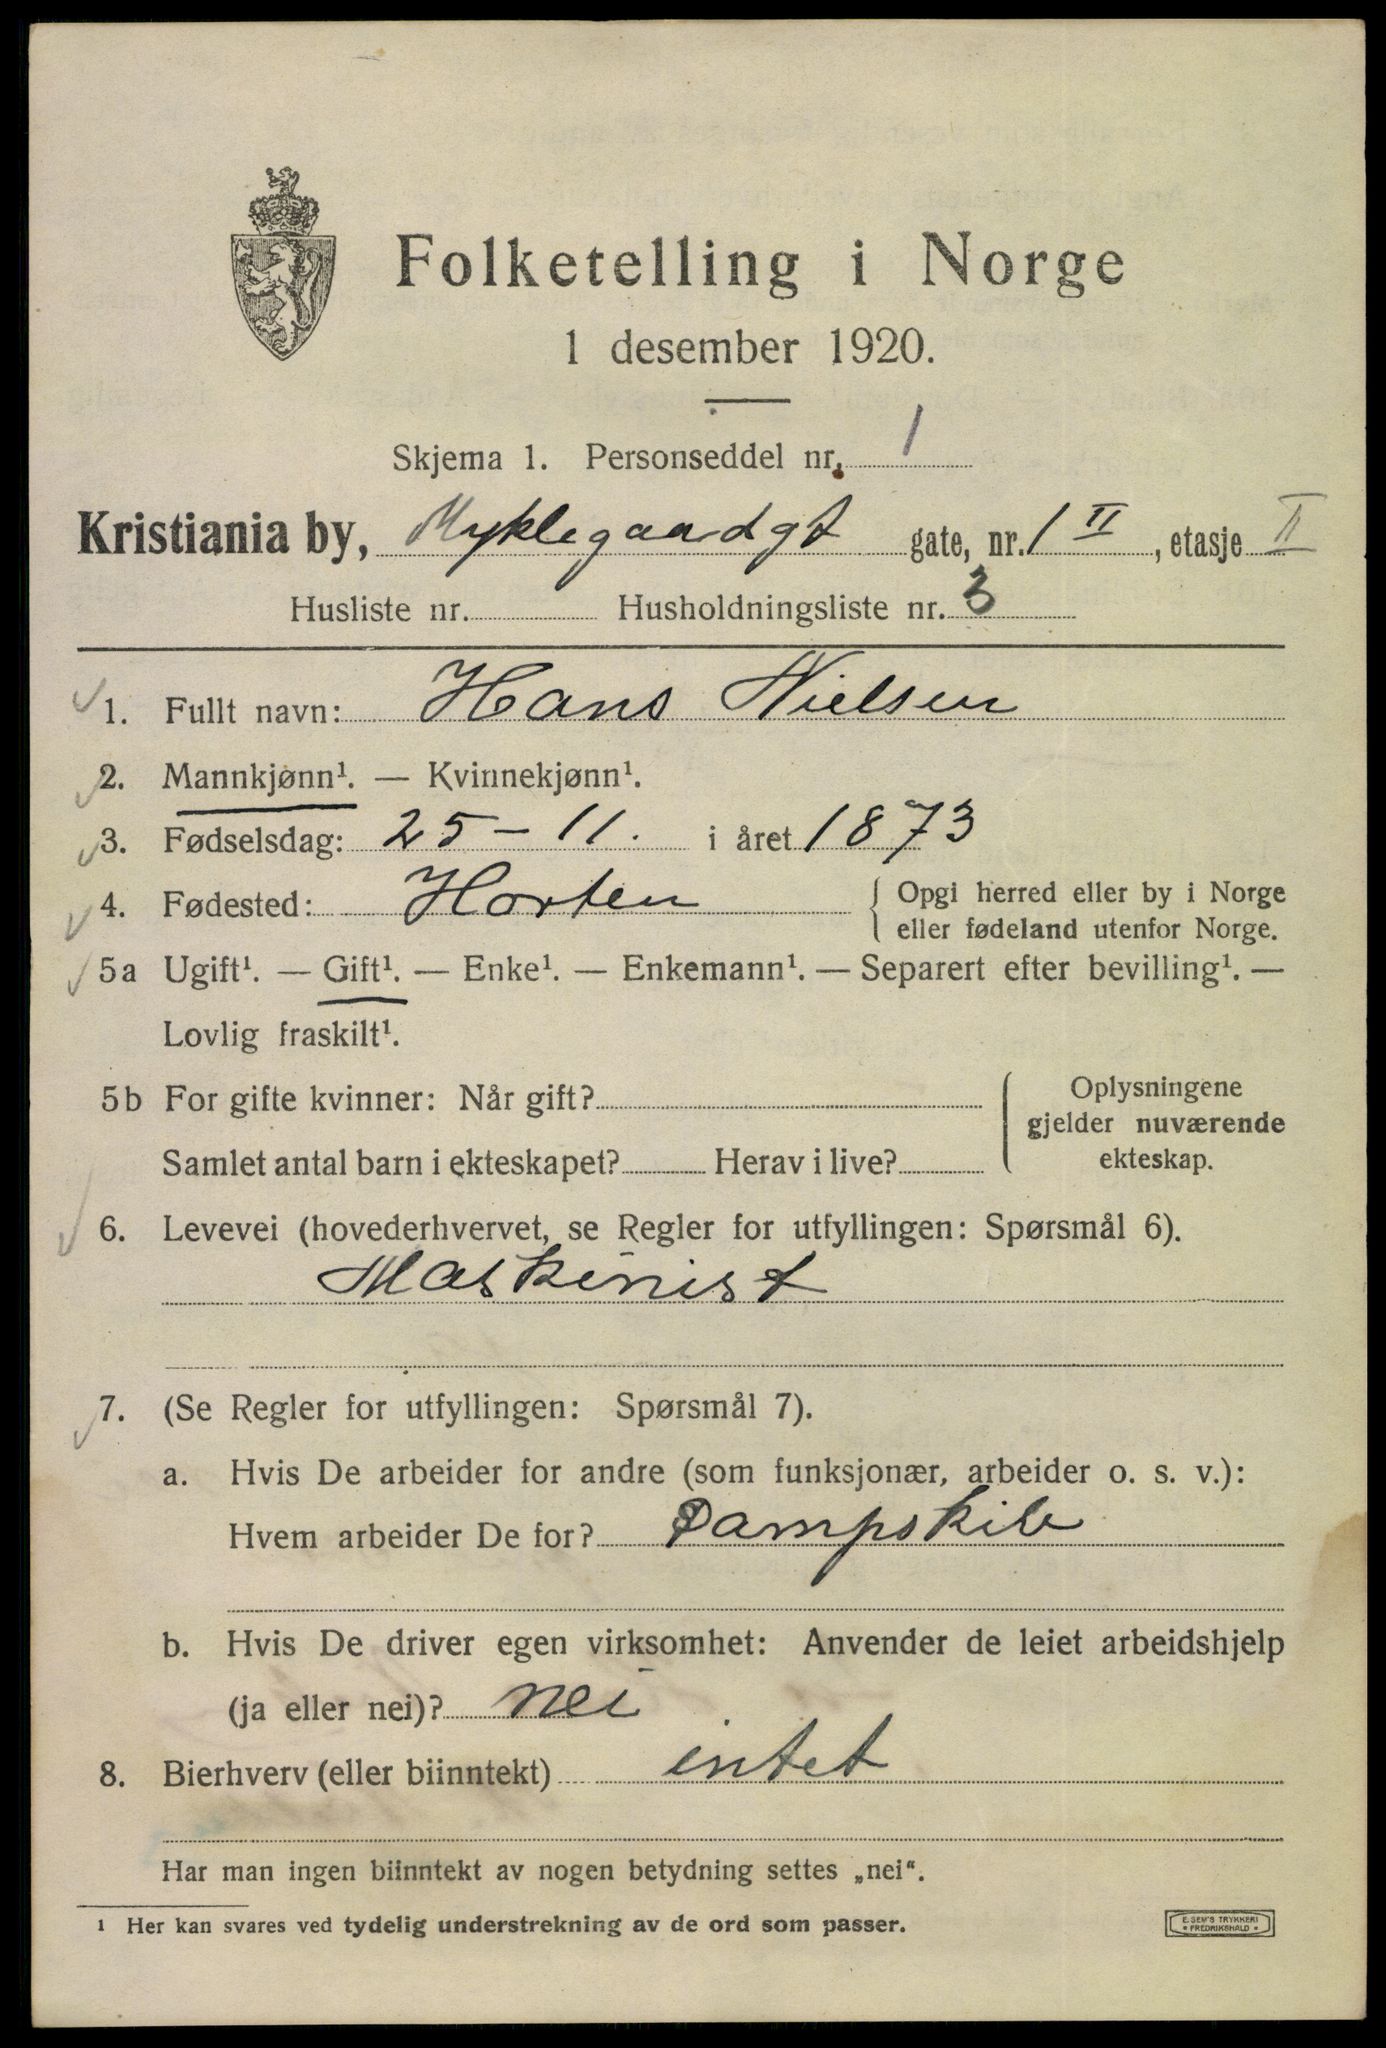 Folketelling i Norge
1 desember 1920.
Skjema 1. Personseddel nr. 1
Kristiania by, Myklegaardgt gate, nr. 1 II, etasje II
Husliste nr. Husholdningsliste nr. 3
1. Fullt navn: Hans Nielsen
2. Mannkjønn¹. — Kvinnekjønn¹.
3. Fødselsdag: 25 – 11. i året 1873
4. Fødested: Horten { Opgi herred eller by i Norge
eller fødeland utenfor Norge.
5a Ugift¹. — Gift¹. — Enke¹. — Enkemann¹. — Separert efter bevilling¹. —
Lovlig fraskilt¹.
5b For gifte kvinner: Når gift? { Oplysningene
gjelder nuværende
Samlet antal barn i ekteskapet? Herav i live? ekteskap.
6. Levevei (hovederhvervet, se Regler for utfyllingen: Spørsmål 6).
Maskinist
7. (Se Regler for utfyllingen: Spørsmål 7).
a. Hvis De arbeider for andre (som funksjonær, arbeider o. s. v.):
Hvem arbeider De for?
b. Hvis De driver egen virksomhet: Anvender de leiet arbeidshjelp
(ja eller nei)? nei
8. Bierhverv (eller biinntekt) intet
Har man ingen biinntekt av nogen betydning settes „nei“.
¹ Her kan svares ved tydelig understrekning av de ord som passer.
E. SEM'S TRYKKERI
* FREDRIKSHALD *